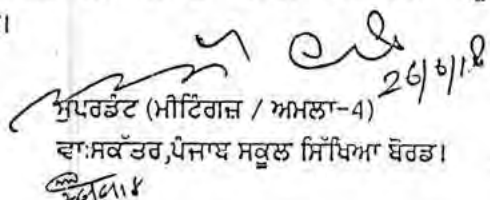 ।
26/6/18
ਸੁਪਰਡੰਟ (ਮੀਟਿੰਗਜ਼ / ਅਮਲਾ-4)
ਵਾ:ਸਕੱਤਰ,ਪੰਜਾਬ ਸਕੂਲ ਸਿੱਖਿਆ ਬੋਰਡ।